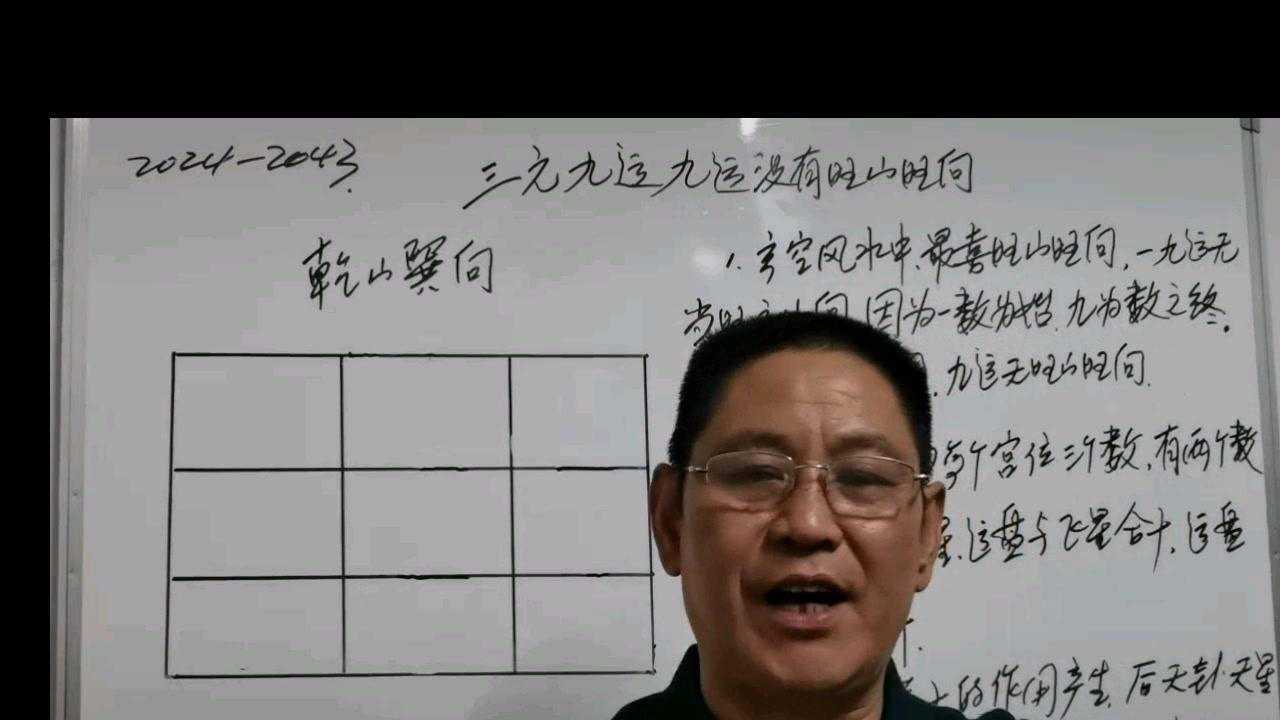 2024-2043
三元九运九运没有旺山旺向
乾山巽向
1.玄空风水中、最喜旺山旺向,一九运无
当旺 向 因为一数为始、九为数之终。
九运无旺山旺向.
每个宫位三个数,有两个数
星、运盘与飞星合十、运盘
上的作用产生、后天卦、天星